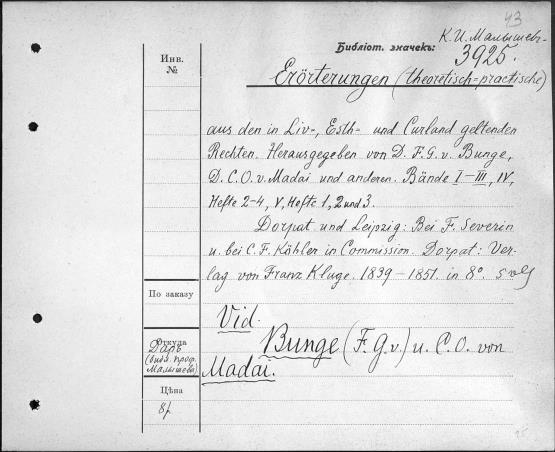 43
К. И. Малышев-
Библіот. значекъ: 3925.
Инв.
№
Erörterungen (theoretisch=practische)
aus den in Liv-, Esth- und Curland geltenden
Rechten. Herausgegeben von D. F. G. v. Bunge,
D. C. O. v. Madai und anderen. Bände I–III, IV,
Hefte 2-4, V, Hefte 1, 2 und 3.
Dorpat und Leipzig: Bei F. Severin
u. bei C. F. Köhler in Commission. Dorpat: Ver-
lag von Franz Kluge. 1839–1851. in 8°.
По заказу
Vid.
Откуда
Даръ
(библ. проф.
Малышева)
Bunge (F. G. v.) u. C. O. von
Madai.
Цѣна